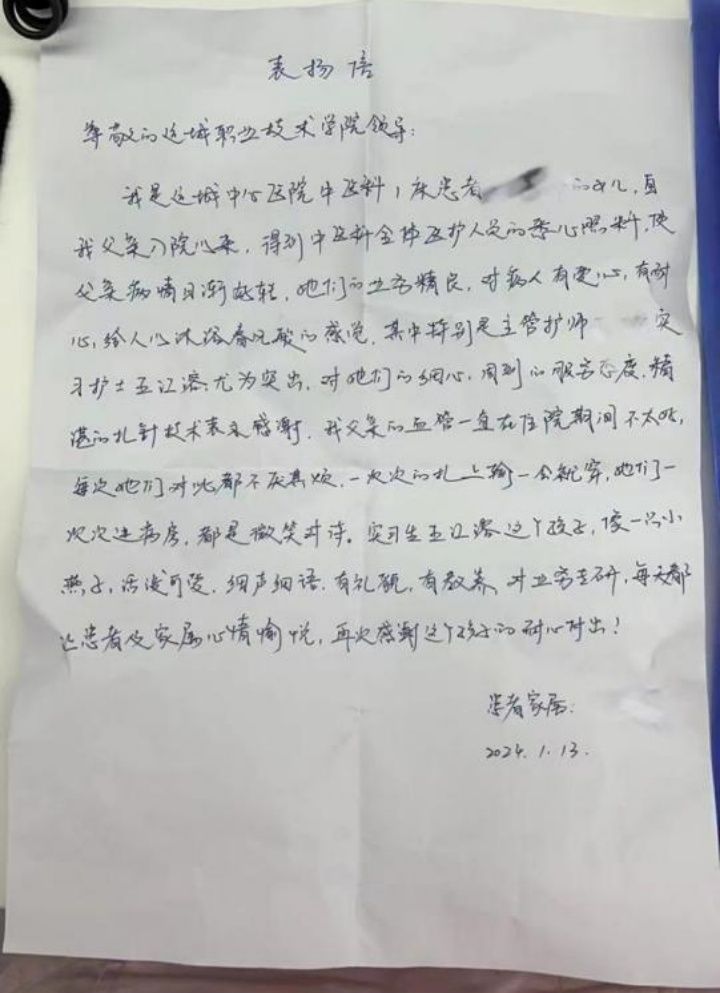 表扬信
尊敬的运城职业技术学院领导:
我是运城中心医院中医科1床患者 的女儿,自
我父亲入院以来,得到中医科全体医护人员的悉心照料,使
父亲病情日渐好转,她们的业务精良,对病人有爱心,有耐
心,给人以沐浴春风般的感觉,其中特别是主管护师 实
习护士王江溶尤为突出,对她们的细心,周到的服务态度,精
湛的扎针技术表示感谢,我父亲的血管一直在住院期间不太好,
每次她们对此都不厌其烦,一次次的扎上输一会就穿,她们一
次次进病房,都是微笑对待。实习生王江溶这个孩子,像一只小
燕子,活泼可爱,细声细语,有礼貌,有教养,对业务专研,每天都
让患者及家属心情愉悦,再次感谢这个孩子的耐心付出!
患者家属:
2024.1.13.